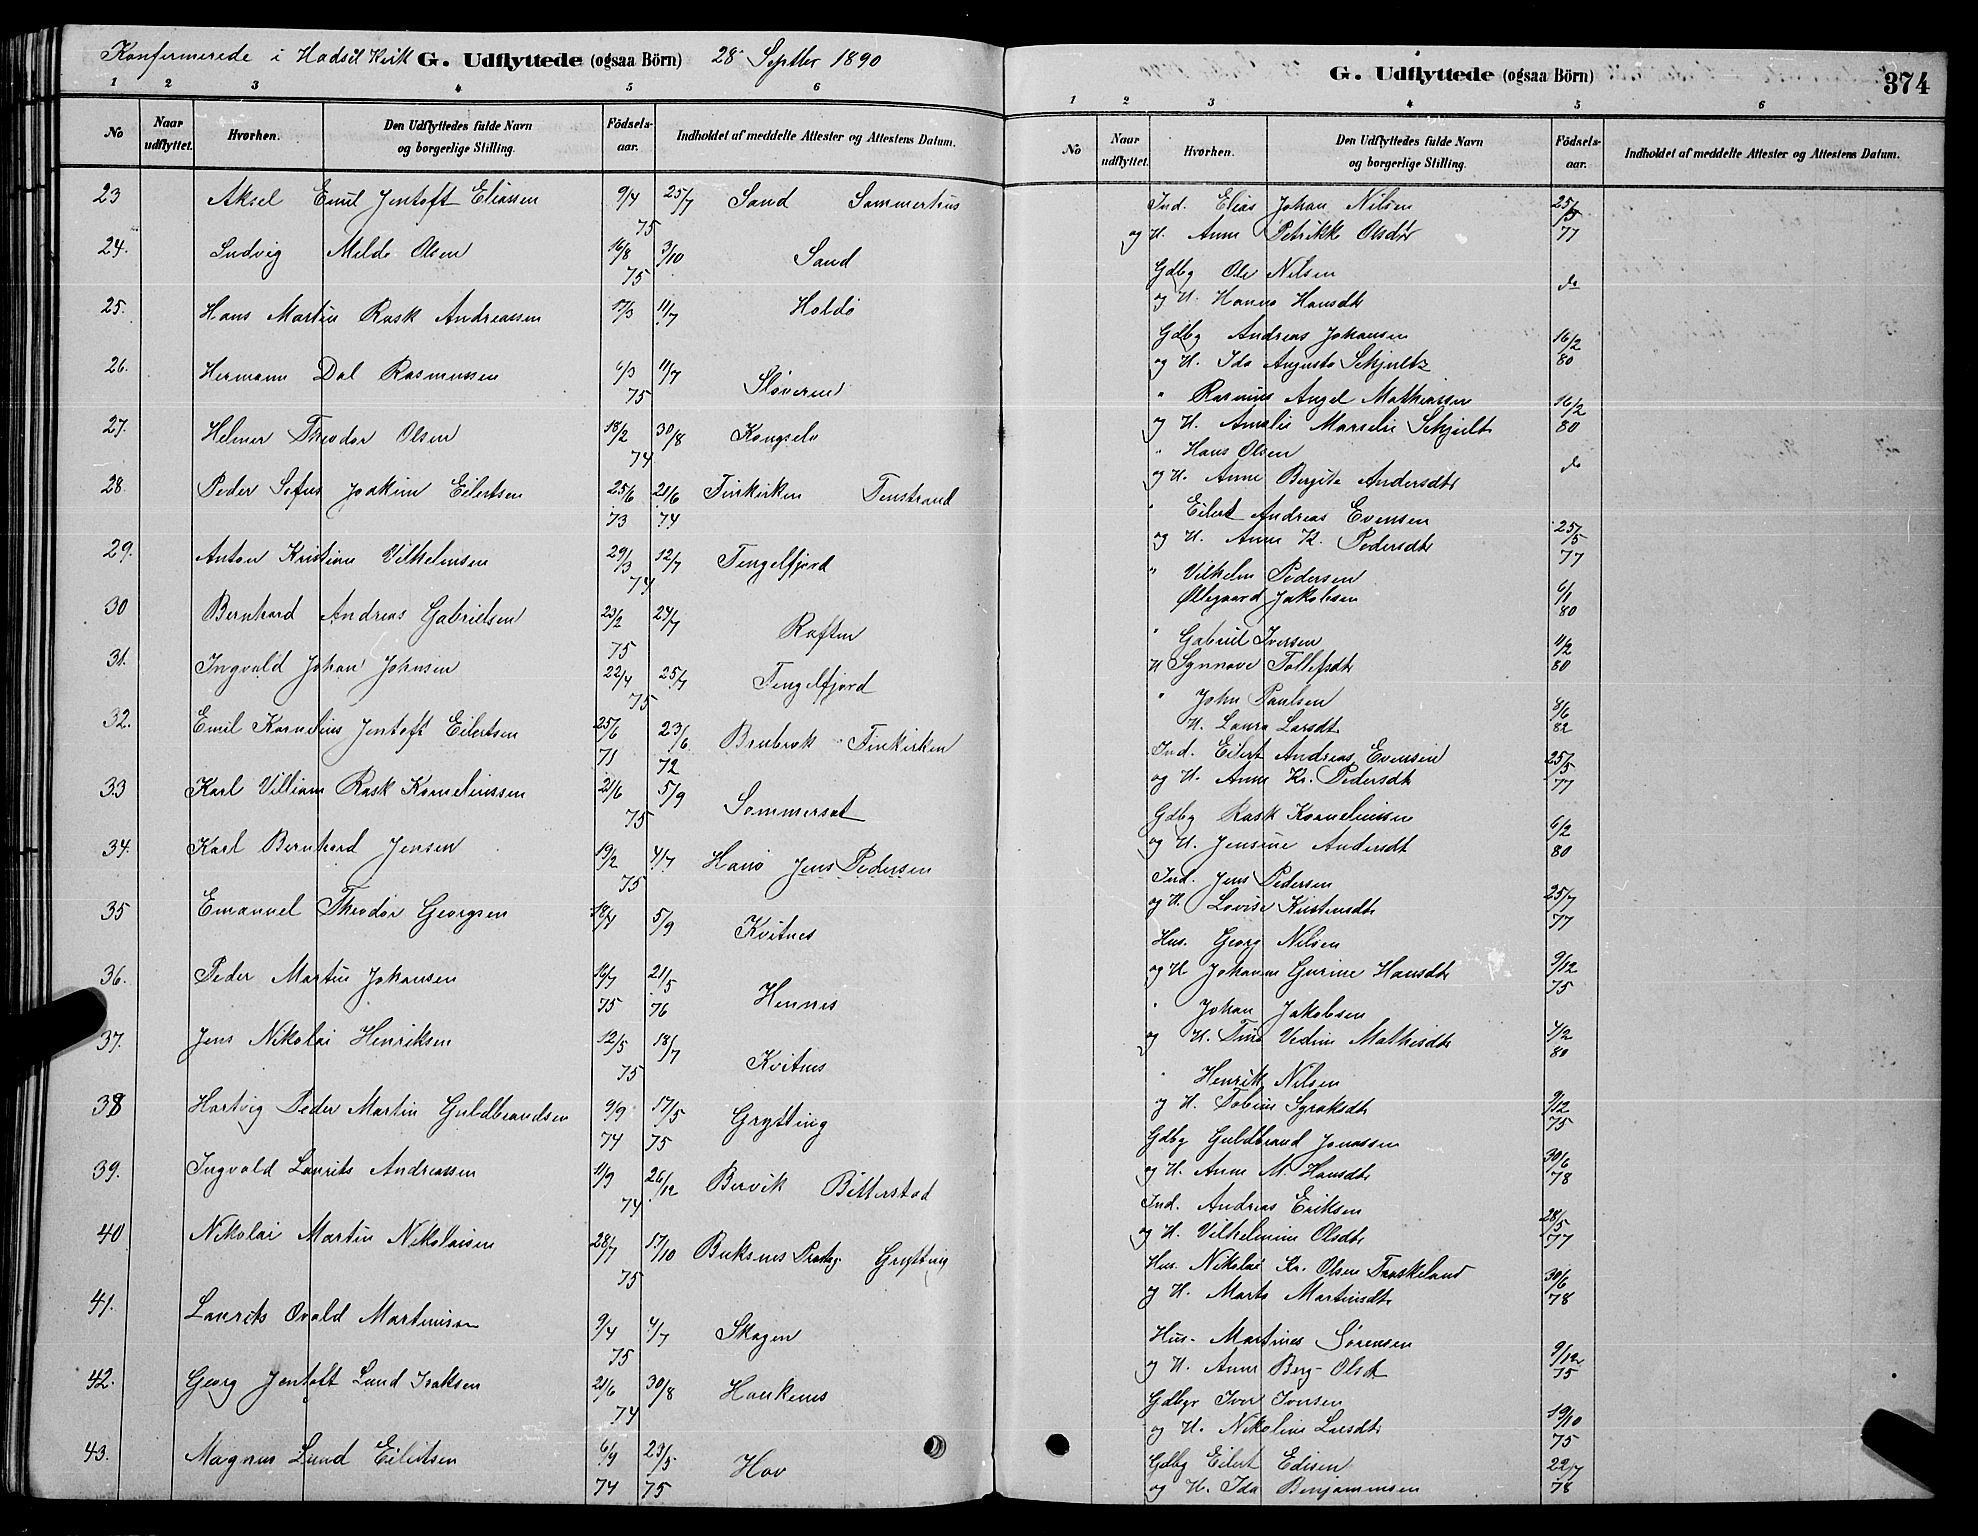 Konfermerede i Hadsel Kirk G. Udflyttede (ogsaa Börn) 28 Septbr 1890
1 2 3 4 5 6
No Naar udflyttet. Hvorhen. Den Udflyttedes fulde Navn og borgerlige Stilling. Födsels-aar. Indholdet af meddelte Attester og Attestens Datum.
23 Aksel Emil Jentoft Eliassen 9/4 75 25/7 Sand Sommerhus
24. Ludvig Melde Olsen 16/8 75 3/10 Sand
25. Hans Martin Rask Andreassen 17/3 11/7 Holdö
26. Hermann Dal Rasmussen 6/3 75 11/7 Sløveren
27. Helmer Theodor Olsen 18/2 74 30/8 Kongselv
28. Peder Sefus Joakim Eilertsen 25/6 73 21/6 74 Finkirken Fenstrand
29. Anton Kristian Vilhelmsen 29/3 74 12/7 Tengelfjord
30 Bernhard Andreas Gabrielsen 23/2 75 24/7 Raften
31. Ingvald Johan Johnsen 22/4 75 25/7 Tengelfjord
32. Emil Kornelius Jentoft Eilertsen 25/6 71 23/6 72 Finkirken
33 Karl Villiam Rask Korneliussen 21/6 75 5/9 Sommerset
34. Karl Bernhard Jensen 19/2 75 4/7 Hanö Jens Pedersen
35 Emanuel Theodor Georgsen 18/7 5/9 Kvitnes
36. Peder Martin Johansen 16/7 75 21/5 76 Hennes
37. Jens Nikolai Henriksen 12/5 75 18/7 Kvitnes
38 Hartvig Peder Martin Guldbrandsen 9/9 74 17/5 75 Grytting
39. Ingvald Laurits Andreassen 11/9 74 26/12 Bervik Bitterstad
40 Nikolai Martin Nikolaisen 28/7 75 17/10 Buksnes Grytting
41. Laurits Ovald Martinussen 9/4 75 4/7 Skagen
42. Georg Jentoft Lund Isaksen 21/6 74 30/8 Haukenes
43. Magnus Lund Eilertsen 6/9 74 23/5 75 Hov
G. Udflyttede (ogsaa Börn) 374
1 2 3 4 5 6
No Naar udflyttet. Hvorhen. Den Udflyttedes fulde Navn og borgerlige Stilling. Födsels-aar. Indholdet af meddelte Attester og Attestens Datum.
Ind. Elias Johan Nilsen 25/5
og H. Anne Petrikke Olsdtr 77
Gdbg Ole Nilsen do
og H. Hanna Hansdtr
Gdbg Andreas Johansen 16/2
og H. Ida Augusta Schjultz 80
" Rasmus Angel Mathiassen 16/2
og H. Amalie Marselie Schjelt 80
" Hans Olsen do
og H. Anne Bergite Andersdtr
" Eilert Andreas Evensen 25/5
og H. Anne K. Pedersdtr 77
" Vilhelm Pedersen 6/1
Ollegaard Jakobsen 80
" Gabriel Iversen 11/2
H Synnøve Tollefsdtr 80
" John Paulsen 8/6
H. Laura Larsdtr 82
Ind. Eilert Andreas Evensen 25/5
og H. Anne Kr. Pedersdtr 77
Gdbg Rask Korneliussen 6/2
og H. Jensine Andersdtr 80
Ind. Jens Pedersen 25/7
og H. Lovise Kristensdtr 77
Hus. Georg Nilsen 9/12
og H Johanne Gurine Hansdtr 75
" Johan Jakobsen 7/2
og H. Tina Vedine Mathisdtr 80
" Henrik Nilsen 9/12
og H. Tobine Syraksdtr 75
Gdbg Guldbrand Jonassen 30/6
og H. Anne M. Hansdtr 78
Ind. Andreas Eriksen 28/5
og H. Vilhelmine Olsdtr 77
Hus. Nikolai Kr. Olsen Traskeland 30/6
og H. Marta Martinsdtr 78
Hus. Martines Sørensen 9/12
og H. Anne Berg- Olsd 75
Gdbgr Iver Iversen 19/10
og H. Nikoline Larsdtr 75
Gdbg Eilert Edisen 22/7
og H. Ida Benjaminsen 78